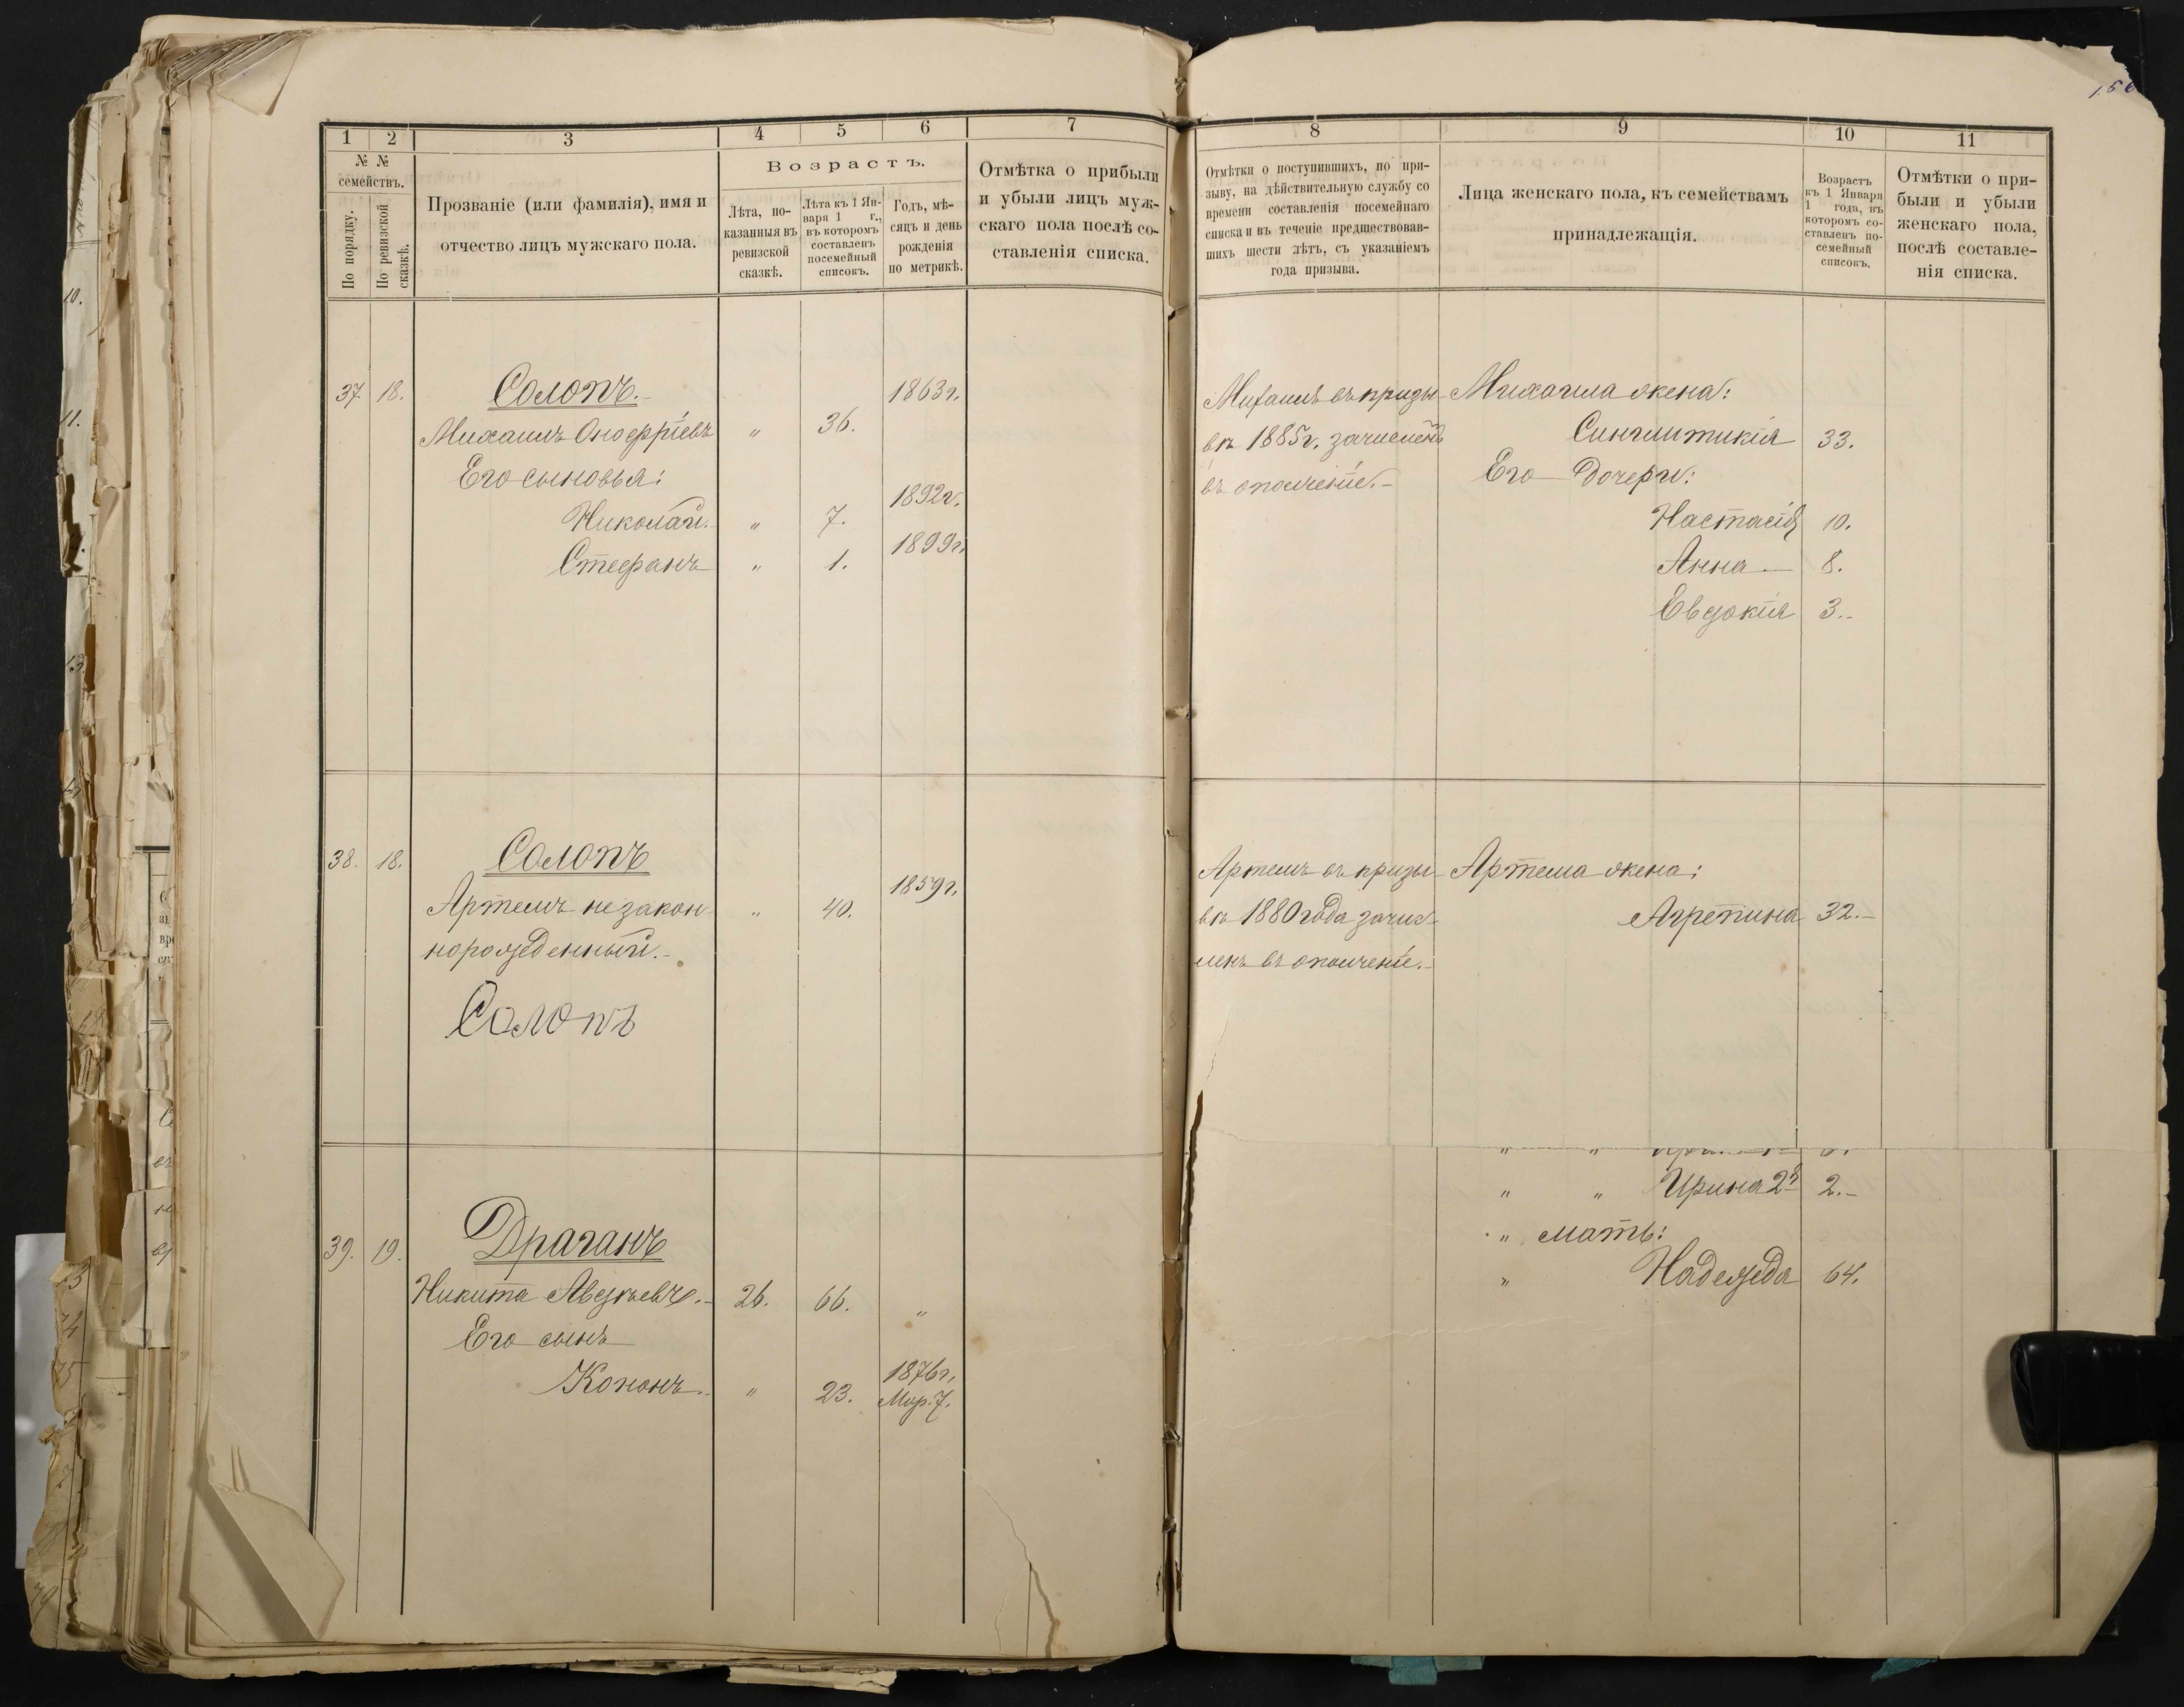 1
2
3
4
5
6
7
№ №
семействъ.
По порядку.
По ревизской
сказкѣ.
Прозваніе (или фамилія), имя и
отчество лицъ мужскаго пола.
Возрастъ.
Лѣта, по-
казанныя въ
ревизской
сказкѣ.
Лѣта къ 1 Ян-
варя 1 г.,
въ которомъ
составленъ
посемейный
списокъ.
Годъ, мѣ-
сяцъ и день
рожденія
по метрикѣ.
Отмѣтка о прибыли
и убыли лицъ муж-
скаго пола послѣ со-
ставленія списка.
37. 18. Солопъ. 1863 г.
Михаилъ Оноефріевъ " 36.
Его сыновья:
Николай. " 7. 1892 г.
Стефанъ " 1. 1899 г.
38. 18. Солопъ
Артемъ незакон- " 40. 1859 г.
норожденный.
Солопъ
39. 19. Драганъ
Никита Авдѣевъ. 26. 66. "
Его сынъ
Кононъ. " 23. 1876 г.
Мар. 7.
8
9
10
11
Отмѣтки о поступившихъ, по при-
зыву, на дѣйствительную службу со
времени составленія посемейнаго
списка и въ теченіе предшествовав-
шихъ шести лѣтъ, съ указаніемъ
года призыва.
Лица женскаго пола, къ семействамъ
принадлежащія.
Возрастъ
къ 1 Января
1 года, въ
которомъ со-
ставленъ по-
семейный
списокъ.
Отмѣтки о при-
были и убыли
женскаго пола,
послѣ составле-
нія списка.
Михаилъ въ призы- Михаила жена:
вѣ 1885 г. зачисленъ Синглитикія 33.
въ ополченіе. Его дочери:
Настасія 10.
Анна 8.
Евдокія 3.
Артемъ въ призы- Артема жена:
вѣ 1880 года зачис- Агрепина 32.
ленъ въ ополченіе.
" " Ирина 2я 2.
" мать:
" Надежда 64.